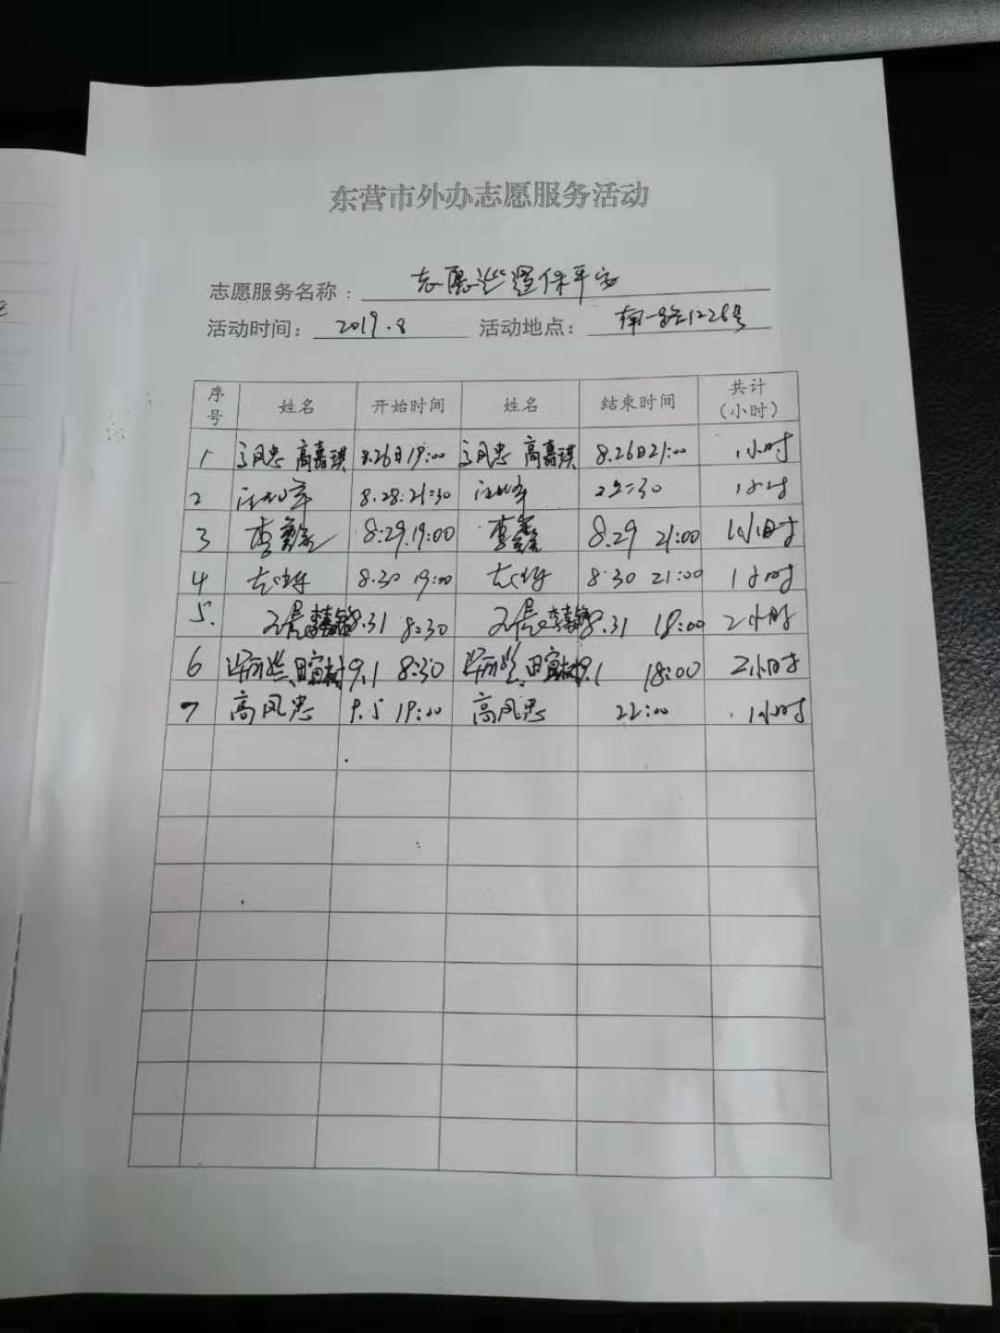 东营市外办志愿服务活动
志愿服务名称：志愿巡逻保平安
活动时间：2019.8 活动地点：南一路1228号
序号 姓名 开始时间 姓名 结束时间 共计（小时）
1 高风忠 高嘉琪 8.26日19:00 高风忠 高嘉琪 8.26日21:00 1小时
2 8.28.21:30 22:30 1小时
3 李鑫 8.29.19:00 李鑫 8.29 21:00 1小时
4 8.30 19:00 8.30 21:00 1小时
5. 8.31 8:30 8.31 18:00 2小时
6 9.1 8:30 9.1 18:00 2小时
7 高风忠 9.5 19:00 高风忠 22:00 1小时